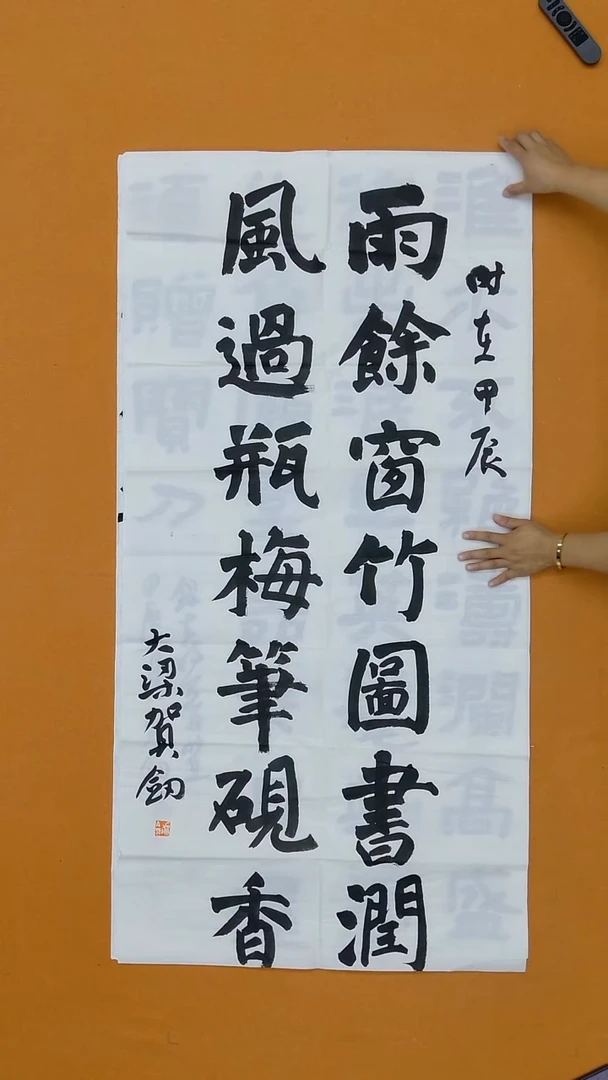 時在甲辰
雨餘窗竹圖書潤
風過瓶梅筆硯香
大梁賀劍